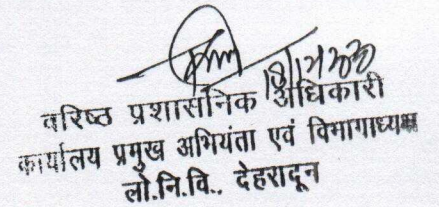 वरिष्ठ प्रशासनिक अधिकारी
कार्यालय प्रमुख अभियंता एवं विभागाध्यक्ष
लो.नि.वि., देहरादून